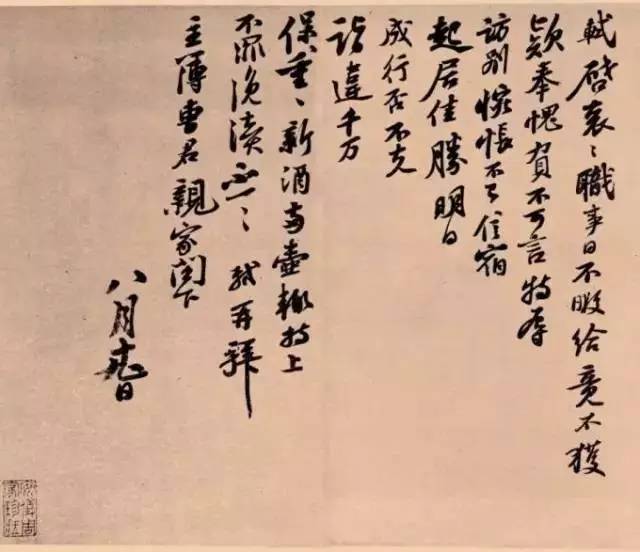 軾啓袞〻職事日不暇給竟不獲
款奉愧負不可言特辱
訪別惋悵不已信宿
起居佳勝明日
成行否不克
詣違千万
保重〻新酒两壷輙持上
不罪浼瀆不一〻軾再拜
主簿曹君親家閤下
八月日